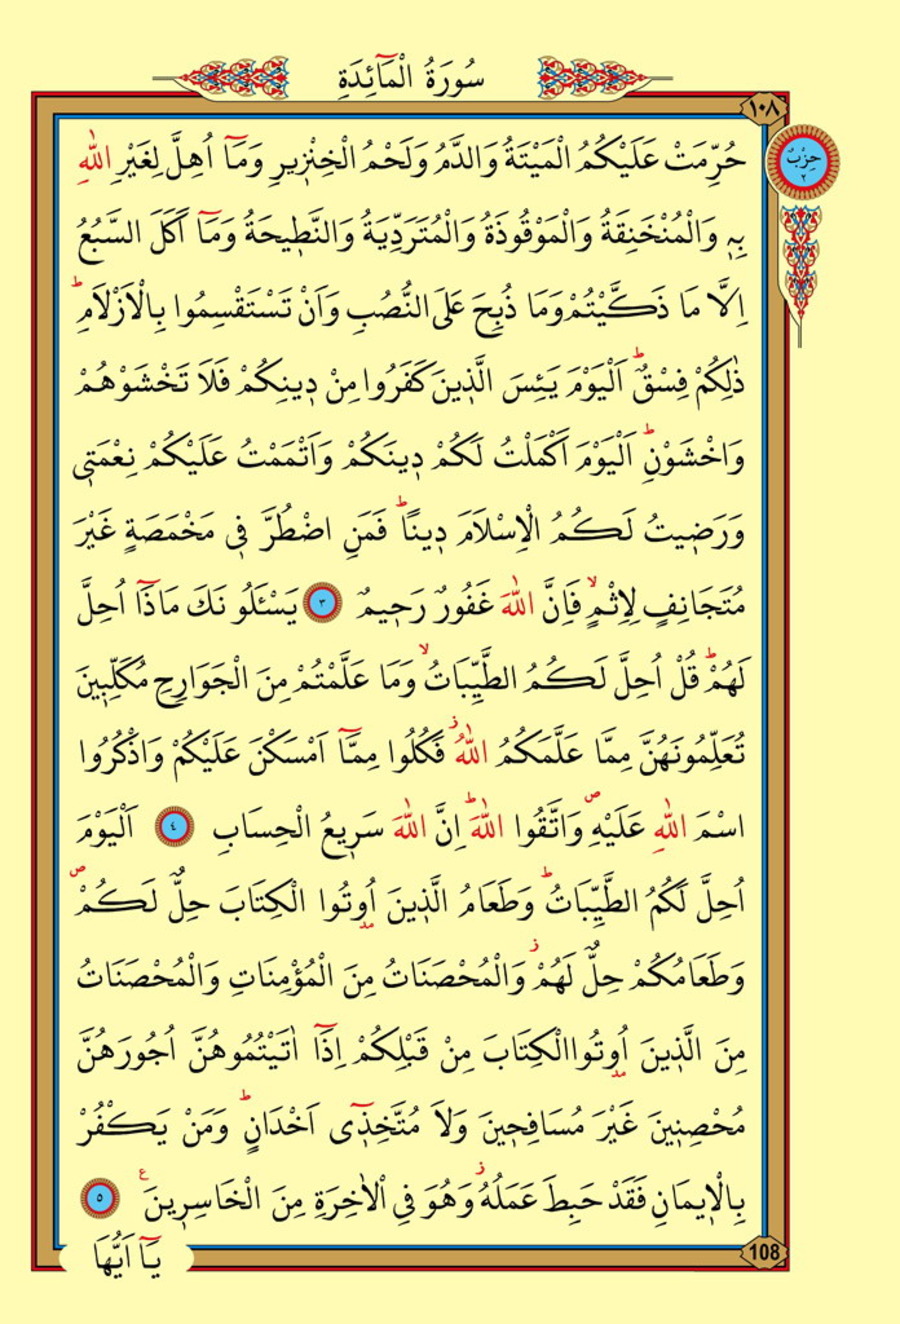 سُورَةُ الْمَٓائِدَةِ
١٠٨
حِزْبٌ
٢
حُرِّمَتْ عَلَيْكُمُ الْمَيْتَةُ وَالدَّمُ وَلَحْمُ الْخِنْز۪يرِ وَمَٓا اُهِلَّ لِغَيْرِ اللّٰهِ
بِه۪ وَالْمُنْخَنِقَةُ وَالْمَوْقُوذَةُ وَالْمُتَرَدِّيَةُ وَالنَّط۪يحَةُ وَمَٓا اَكَلَ السَّبُعُ
اِلَّا مَا ذَكَّيْتُمْ وَمَا ذُبِحَ عَلَى النُّصُبِ وَاَنْ تَسْتَقْسِمُوا بِالْاَزْلَامِۜ
ذٰلِكُمْ فِسْقٌۜ اَلْيَوْمَ يَئِسَ الَّذ۪ينَ كَفَرُوا مِنْ د۪ينِكُمْ فَلَا تَخْشَوْهُمْ
وَاخْشَوْنِۜ اَلْيَوْمَ اَكْمَلْتُ لَكُمْ د۪ينَكُمْ وَاَتْمَمْتُ عَلَيْكُمْ نِعْمَت۪ي
وَرَض۪يتُ لَكُمُ الْاِسْلَامَ د۪ينًاۜ فَمَنِ اضْطُرَّ ف۪ي مَخْمَصَةٍ غَيْرَ
مُتَجَانِفٍ لِاِثْمٍۙ فَاِنَّ اللّٰهَ غَفُورٌ رَح۪يمٌ ﴿٣﴾ يَسْـَٔلُونَكَ مَاذَٓا اُحِلَّ
لَهُمْۜ قُلْ اُحِلَّ لَكُمُ الطَّيِّبَاتُۙ وَمَا عَلَّمْتُمْ مِنَ الْجَوَارِحِ مُكَلِّب۪ينَ
تُعَلِّمُونَهُنَّ مِمَّا عَلَّمَكُمُ اللّٰهُۘ فَكُلُوا مِمَّٓا اَمْسَكْنَ عَلَيْكُمْ وَاذْكُرُوا
اسْمَ اللّٰهِ عَلَيْهِۖ وَاتَّقُوا اللّٰهَۜ اِنَّ اللّٰهَ سَر۪يعُ الْحِسَابِ ﴿٤﴾ اَلْيَوْمَ
اُحِلَّ لَكُمُ الطَّيِّبَاتُۜ وَطَعَامُ الَّذ۪ينَ اُو۫تُوا الْكِتَابَ حِلٌّ لَكُمْۖ
وَطَعَامُكُمْ حِلٌّ لَهُمْۘ وَالْمُحْصَنَاتُ مِنَ الْمُؤْمِنَاتِ وَالْمُحْصَنَاتُ
مِنَ الَّذ۪ينَ اُو۫تُوا الْكِتَابَ مِنْ قَبْلِكُمْ اِذَٓا اٰتَيْتُمُوهُنَّ اُجُورَهُنَّ
مُحْصِن۪ينَ غَيْرَ مُسَافِح۪ينَ وَلَا مُتَّخِذ۪ٓي اَخْدَانٍۜ وَمَنْ يَكْفُرْ
بِالْا۪يمَانِ فَقَدْ حَبِطَ عَمَلُهُۘ وَهُوَ فِي الْاٰخِرَةِ مِنَ الْخَاسِر۪ينَ۟ ﴿٥﴾
يَٓا اَيُّهَا
108